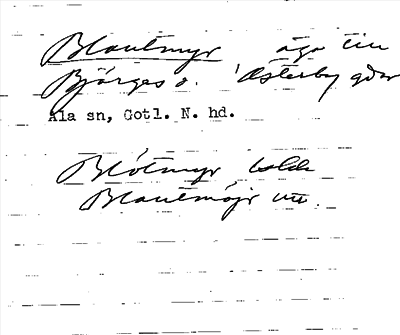 Blautmyr äga till
Bjärges o. Österby gdar
Ala sn, Gotl. N. hd.
Blötmyr
Blautmöjr utt.